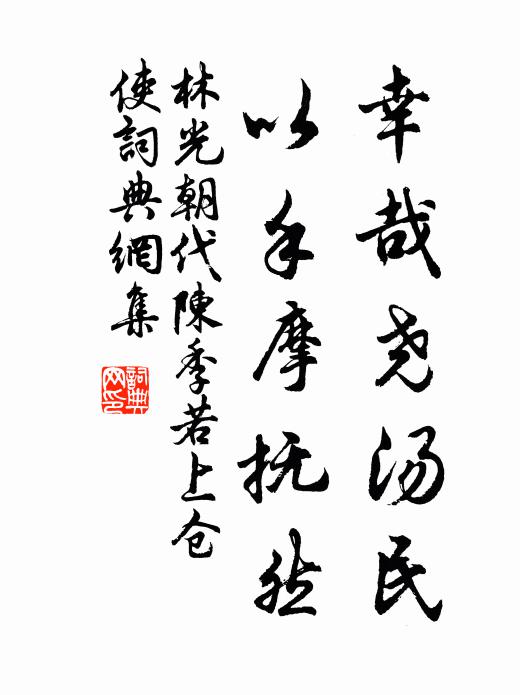 幸哉尧汤民
以手摩抚然
林光朝代陳季若上仓
使詞典網集
詞典网印